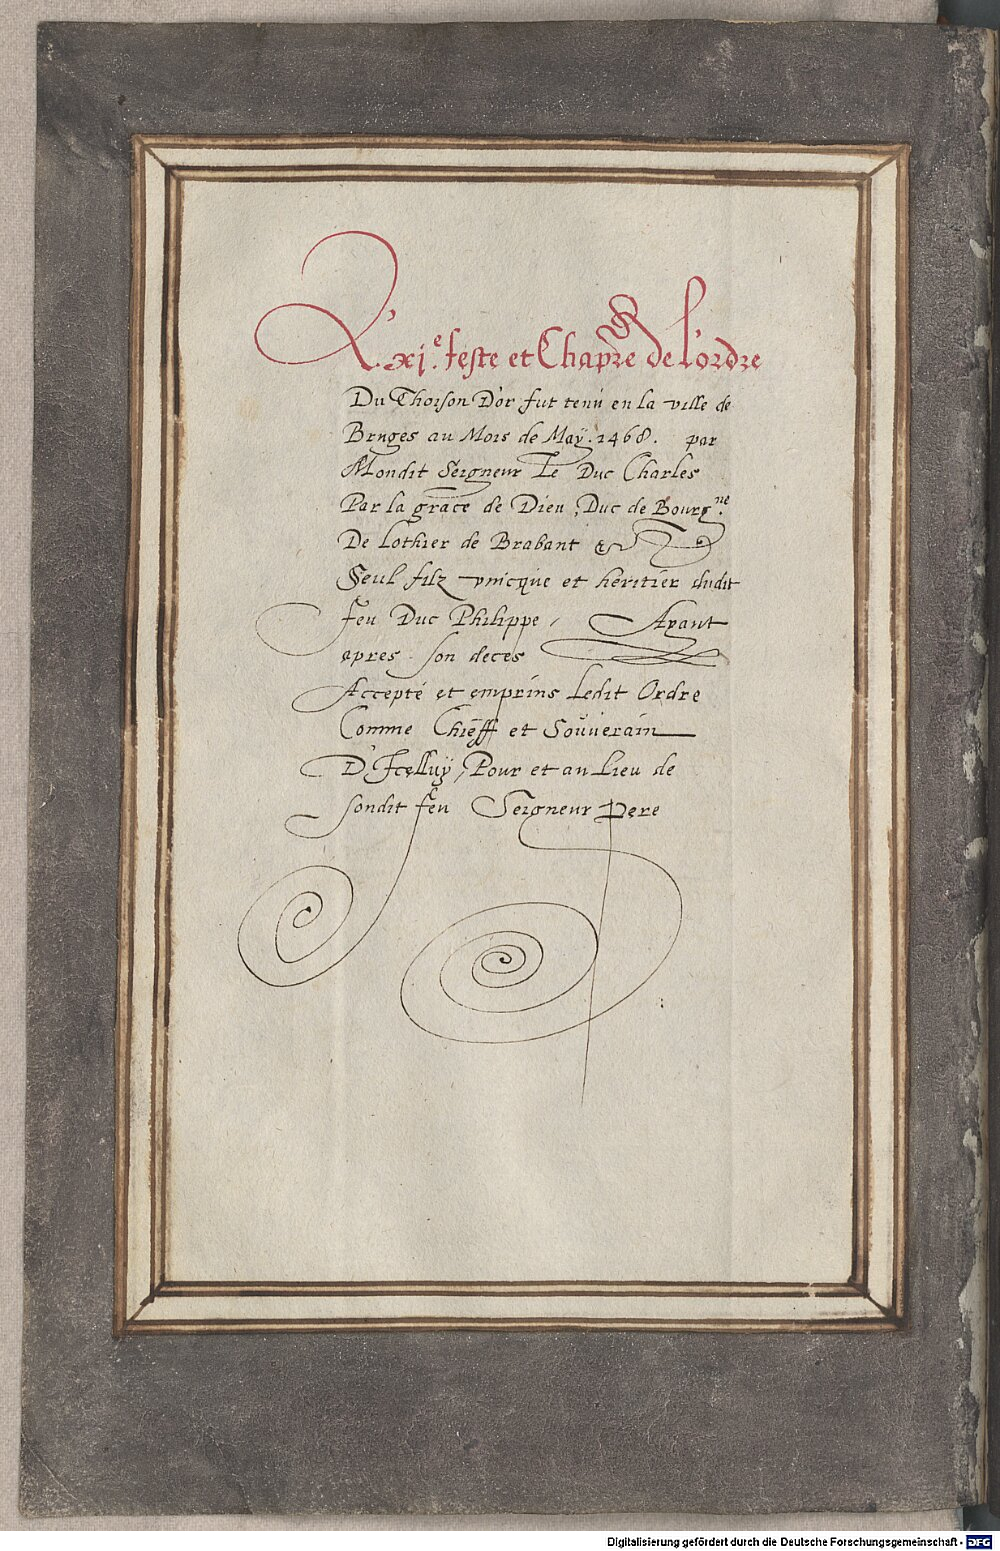 L'xj.e feste et Chap̃re de l'ordre
Du Thoison D'or fut tenu en la ville de
Bruges au Mois de Maÿ. 1468. par
Mondit Seigneur Le Duc Charles
Par la grace de Dieu, Duc de Bourg.ne
De Lothier de Brabant &c
Seul filz vnicque et heritier dudit
feu Duc Philippe, Ayant
apres son deces
Accepté et emprins Ledit Ordre
Comme Chieff et Souuerain
D'Icelluÿ, Pour et au Lieu de
sondit feu Seigneur Pere
Digitalisierung gefördert durch die Deutsche Forschungsgemeinschaft - DFG